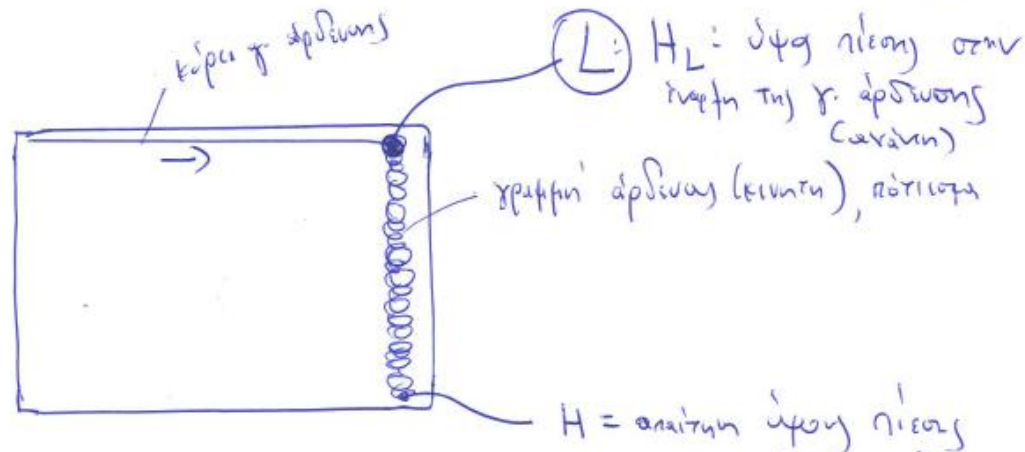 κύρια γ. άρδευσης
L: H_L: ύψος πίεσης στην
έναρξη της γ. άρδευσης
(ανάντη)
γραμμή άρδευσης (κινητή), πότισμα
H = απαίτηση ύψους πίεσης